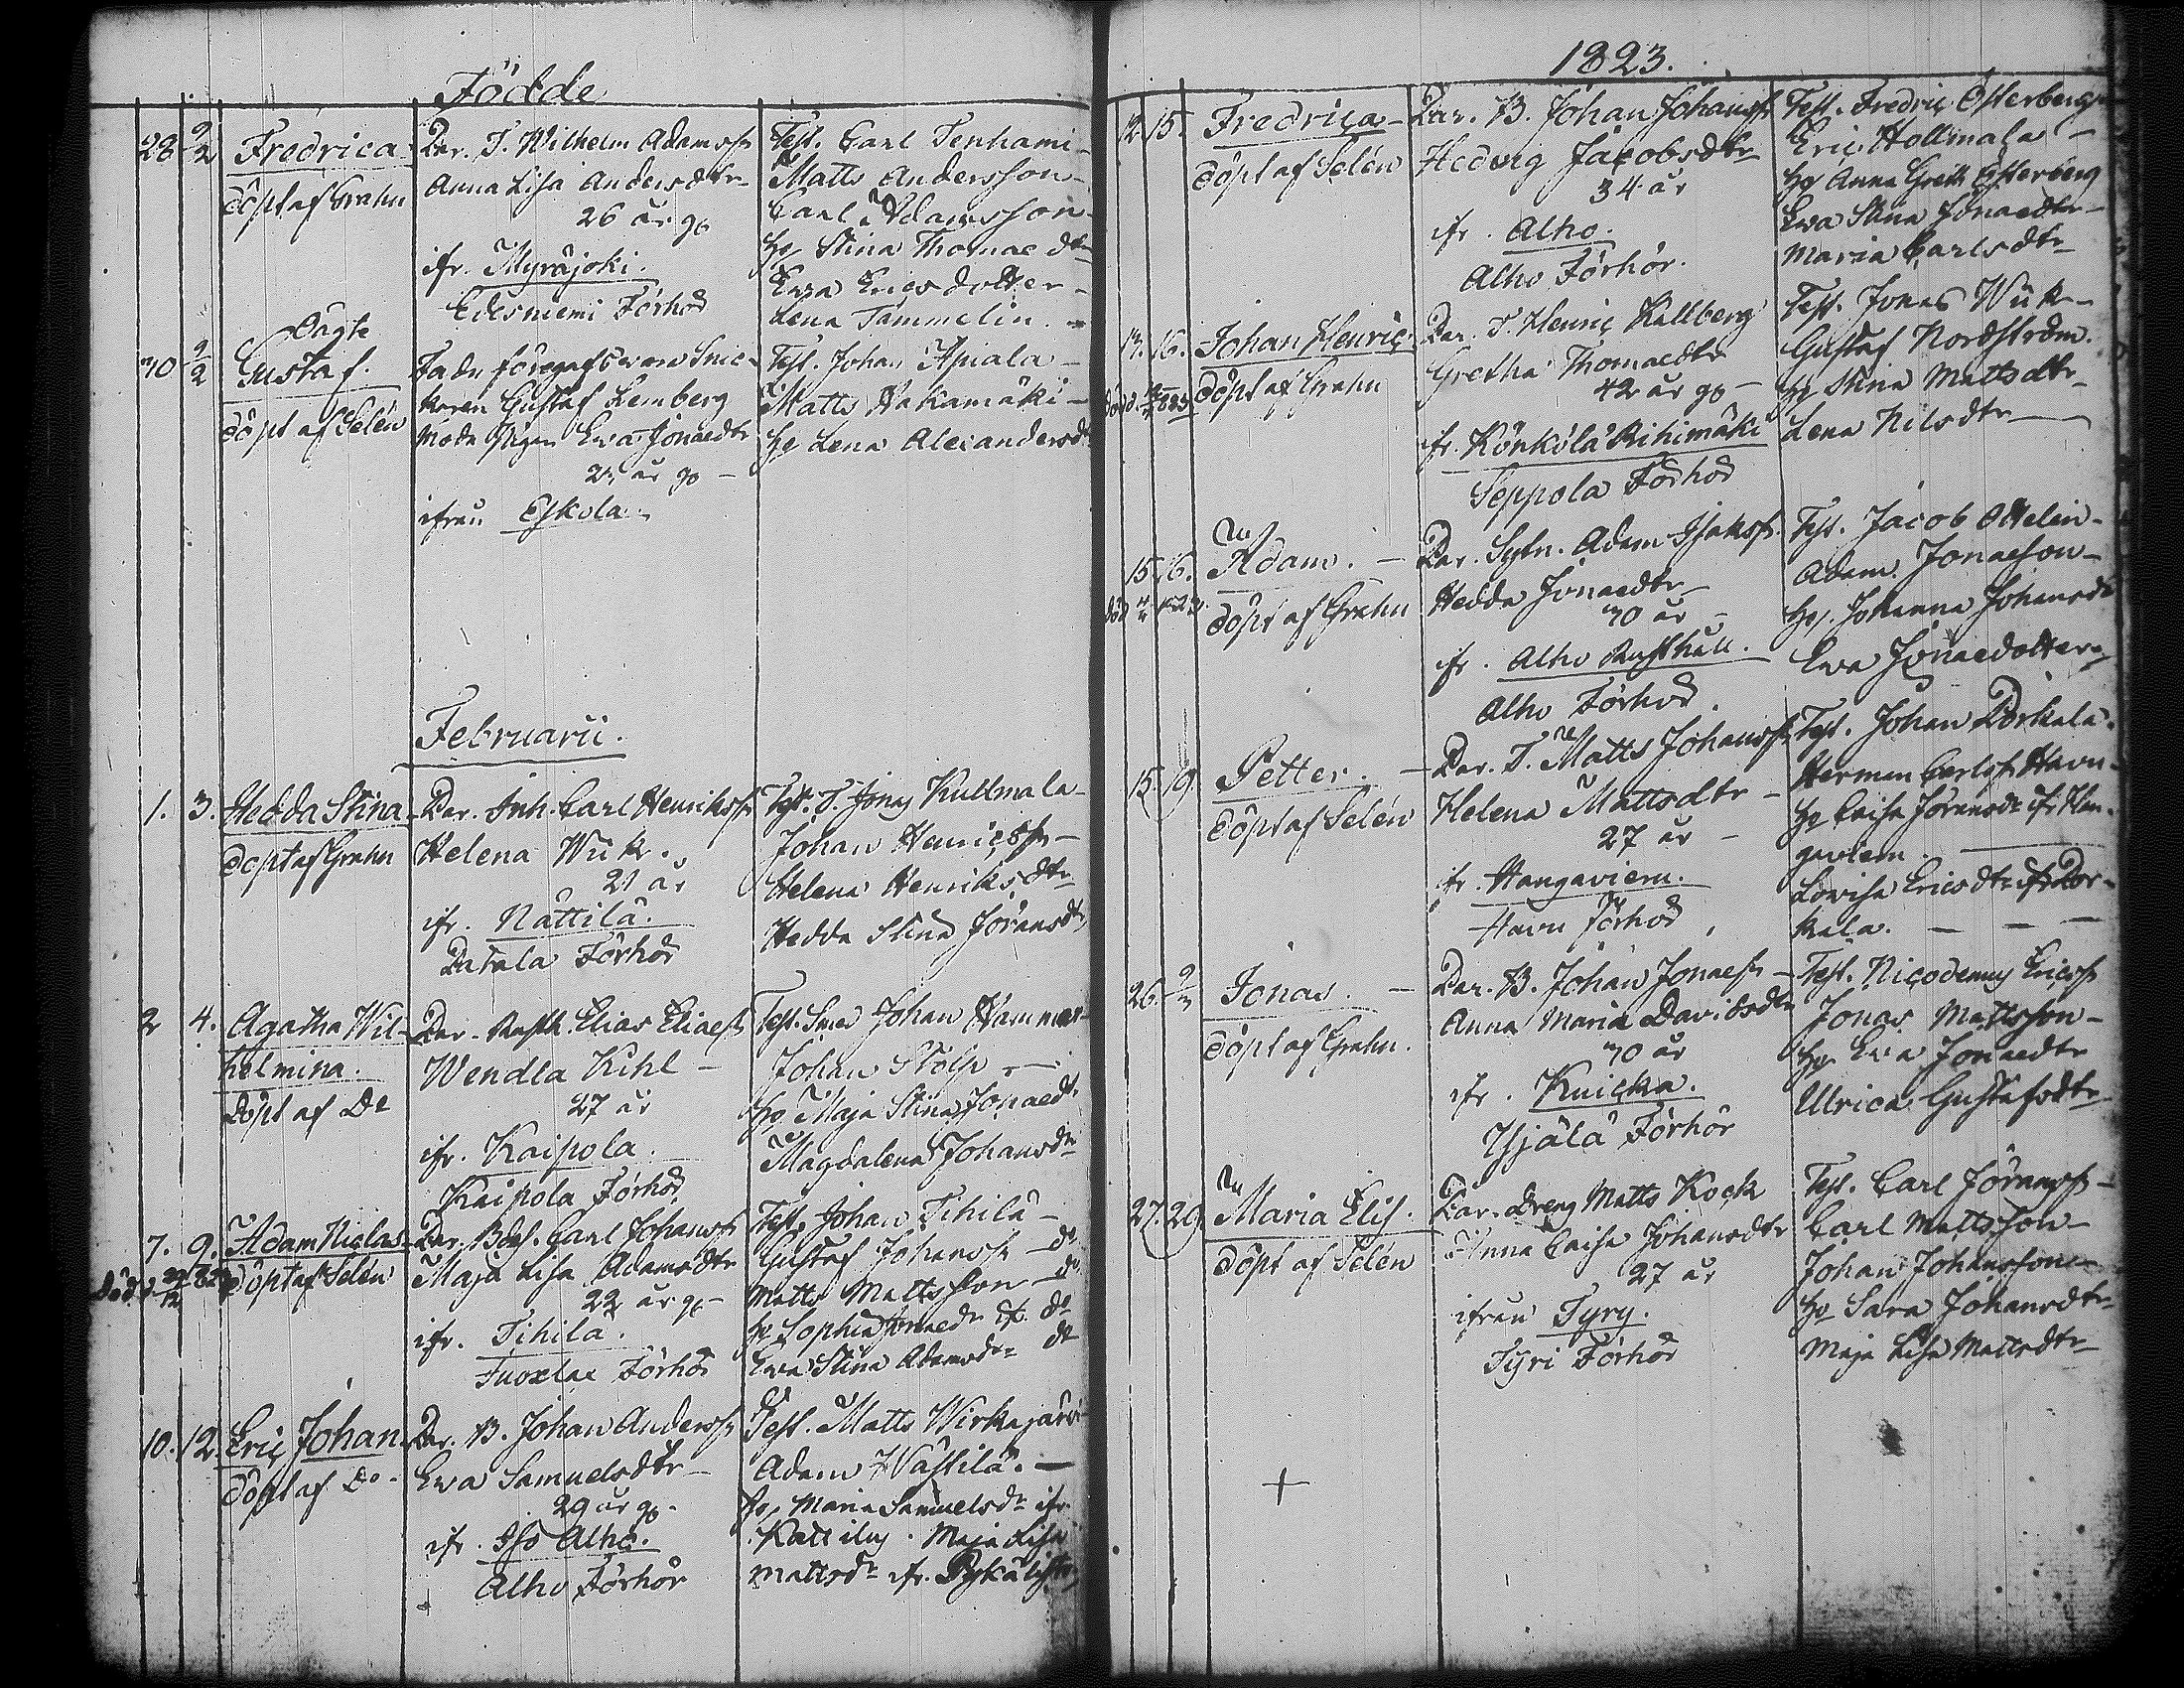 Födde
28 2/2 Fredrica
döpt af Grahn
Par. T. Wilhelm Adamss
Anna Lisa Andersdtr
26 år g.
ifr. Myräjoki.
Edesniemi Förhör
Test. Carl Tenhami
Matts Andersson
Carl Adamsson
hu Stina Thomaedtr
Ewa Ericsdotter
Lena Tammelin.
30 2/2 Oägte
Gustaf.
döpt af Selén
Fadr föregafs vara Snic-
karen Gustaf Lemberg
Modr Pigan Ewa Jonaedtr
år g.
ifrån Eskola
Test. Johan Apiala
Matts Hakamäki
hu Lena Alexandersdr
Februarii.
1. 3. Hedda Stina
döpt af Grahn
Par. Inh. Carl Henrikss
Helena Wiik.
21 år
ifr. Nättilä.
Patala Förhör
Test. T. Jonas Kullmala
Johan Henricss
Helena Henriksdtr
Hedda Stina Göransdr
2 4. Agatha Wil-
helmina.
döpt af Do
Par. Rusth. Elias Eliaess
Wendla Kihl
27 år
ifr. Kaipola.
Kaipola Förhör
Test. Smed Johan Hammar
Johan Stolp
hu Maja Stina Jonaedr
Magdalena Johansdr
7. 9. Adam Niclas
döpt af Selén
Par. Bds. Carl Johanss
Maja Lisa Adamsdtr
22 år g.
ifr. Tihilä.
Tuoxlax Förhör
Test. Johan Tihilä
Gustaf Johanss do
Matts Mattsson do
hu Sophia Jonaedr do
Ewa Stina Adamsdr do
10. 12. Eric Johan
döpt af Do
Par. B. Johan Anderss
Ewa Samuelsdtr
29 år g.
ifr. Iso Alho.
Alho Förhör
Test. Matts Wirkajärvi
Adam Wästilä.
hu Maria Samuelsdr ifr.
Kattilus. Maja Lisa
Mattsdr ifr.
1823.
12 15. Fredrica
döpt af Selén
Par. B. Johan Johanss
Hedvig Jacobsdtr
34 år
ifr. Alho.
Alho Förhör.
Test. Fredric Österberg
Eric Hollmala
hu Anna Greth Österberg
Ewa Stina Jonaedtr
Maria Carlsdtr
14. 16. Johan Henric
döpt af Grahn
Par. T. Henric Kallberg
Gretha Thomaedtr
42 år g.
ifr. Könkölä Riihimäki
Seppola Förhör
Test. Jonas Wiik
Gustaf Nordström.
hu Stina Mattsdtr
Lena Nilsdtr
15. 16. Adam.
döpt af Grahn
Par. Sytn. Adam Isakss.
Hedda Jonaedtr
30 år
ifr. Alho Rusthåll.
Alho Förhör.
Test. Jacob Ottelin
Adam Jonaesson
hu. Johanna Johansdr
Ewa Jonaedotter
15. 19. Petter.
döpt af Selén
Par. T. Matts Johanss
Helena Mattsdtr
27 år
ifr. Hangaviemi.
Havu Förhör
Test. Johan Porkala.
Herman Carlss Havu
hu Caisa Göransdr ifr Han-
gaviem
Lovisa Ericsdtr ifr Por-
kala.
26. Jonas.
döpt af Grahn.
Par. B. Johan Jonaess
Anna Maria Davidsdtr
30 år
ifr. Knicka.
Hjälä Förhör
Test. Nicodemus Ericss
Jonas Mattsson
hu Ewa Jonaedtr
Ulrica Gustafsdtr
27. 29. Maria Elis.
döpt af Selén
Par. Dreng Matts Kock
Anna Caisa Johansdtr
27 år
ifrån Tyry.
Tyri Förhör
Test. Carl Göranss
Carl Mattsson
Johan Johansson
hu Sara Johansdtr
Maja Lisa Mattsdtr